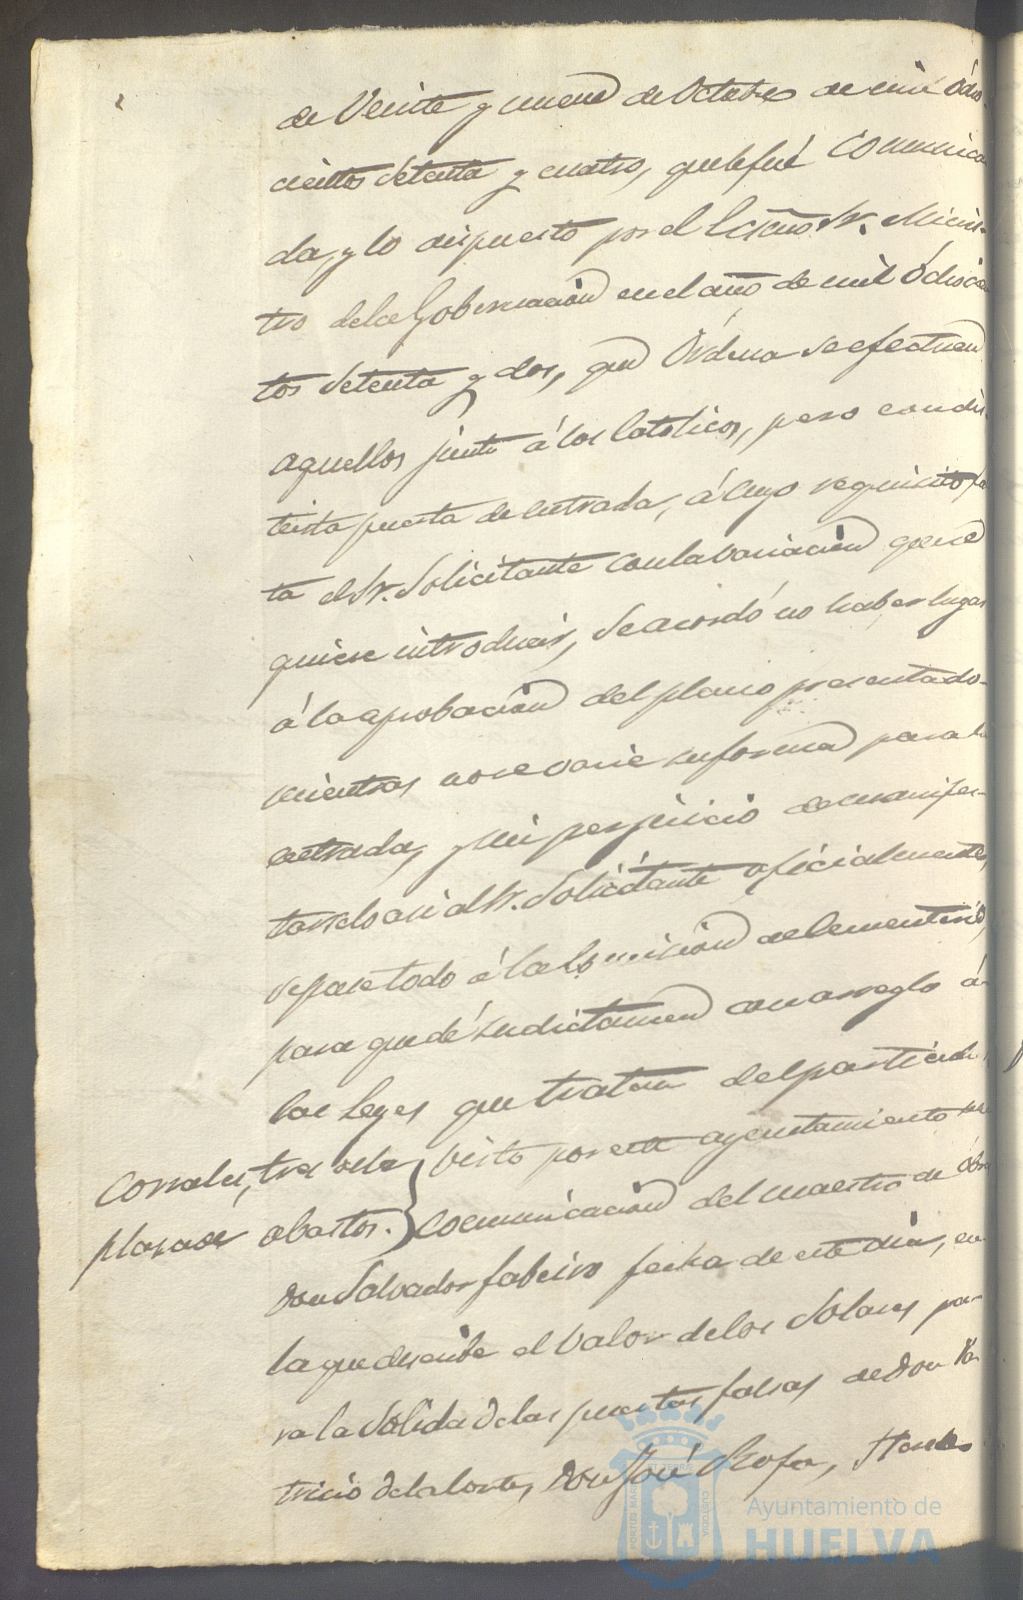 de Veinte y nueve de Octubre de mil ócho-
cientos setenta y cuatro, que le fué comunica
da, y lo dispuesto por el Ecsmo Sr. Minis-
tro de la Gobernacion en el año de mil óchocien
tos setenta y dos, que órdena se efectuen
aquellos junto á los Católicos, pero con dis
tinta puerta de entrada, á cuyo requisito fal
ta el Sr. Solicitante con la variacion que se
quiere introducir, se acordó no haber lugar
á la aprobacion del plano presentado
mientras no se varie su forma para la
entrada, y sin perjuicio de manifes-
tarselo asi al Sr. Solicitante oficialmente,
se pase todo á la Comision de Cementerio,
para que dé su dictamen con arreglo á
las Leyes que tratan del particular
Corrales, tras de la
plaza de abastos.
Visto por este ayuntamiento una
comunicacion del maestro de óbras
Don Salvador fabeiro fecha de este dia, en
la que describe el valor de los Solares pa-
ra la Salida de las puertas falsas de Don Pa
tricio de la Corte, Don José Rofa,
Ayuntamiento de
HUELVA
PORTUS MARIS
ET TERRAE
CUSTODIA